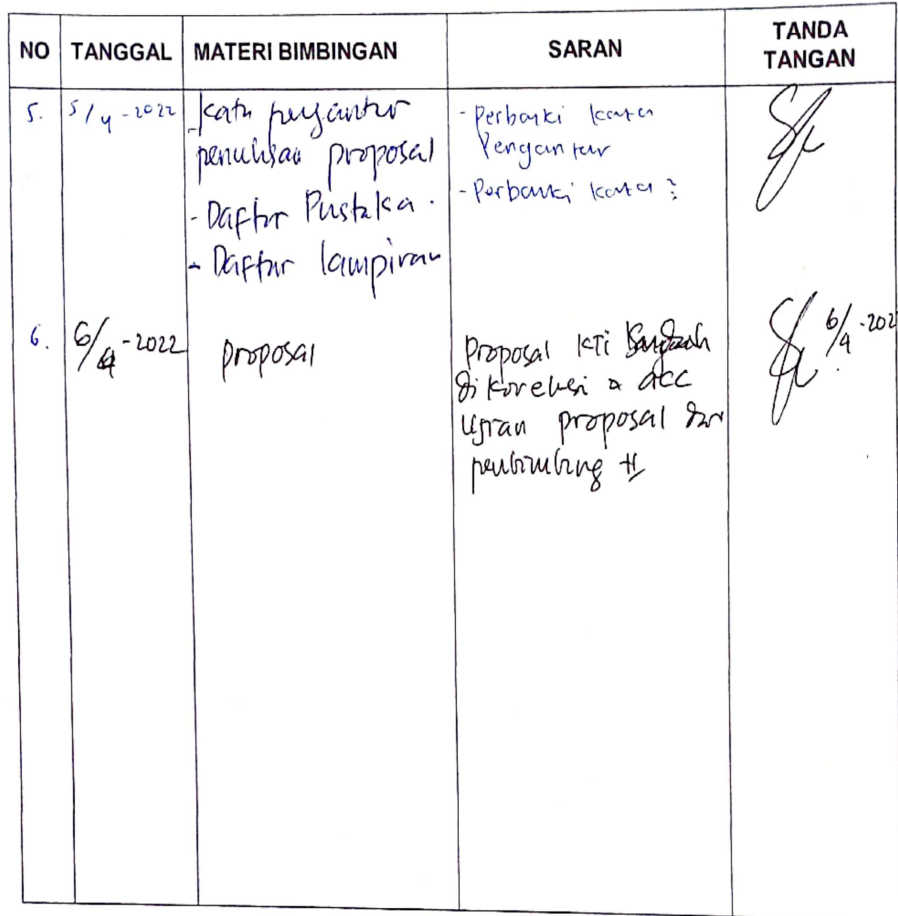 NO TANGGAL MATERI BIMBINGAN SARAN TANDA TANGAN
5. 5/4-2022
- Kata pengantar
penulisan proposal
- Daftar Pustaka.
- Daftar lampiran
- Perbaiki kata
Pengantar
- Perbaiki kata :
6. 6/4-2022
proposal
Proposal KTI sudah
dikoreksi & acc
Ujian proposal dr
pembimbing II
6/4-202